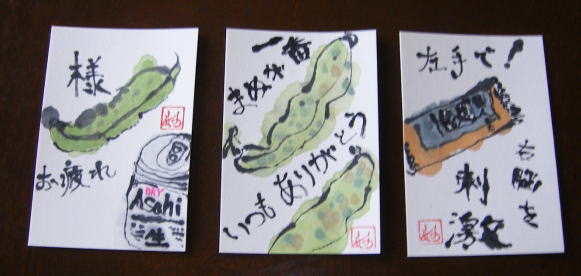 お疲れ
様
DRY
Asahi
生
まめが
一番
いつもありがとう
左手で!
右脳を
刺激